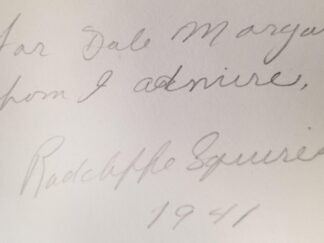 for Dale Morga
hom I admire,
Radcliffe Squires
1941